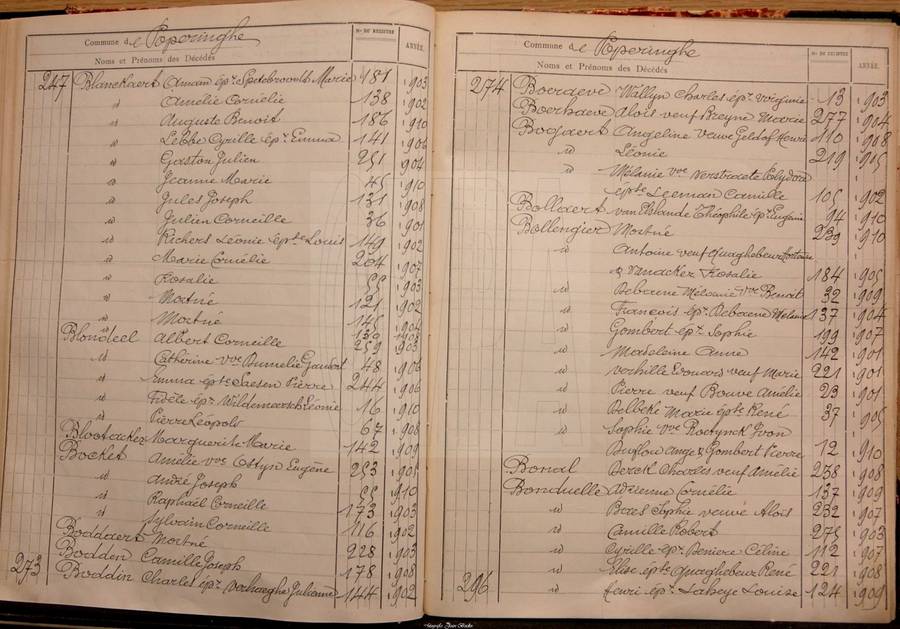 Commune de Poperinghe
Nos DU REGISTRE
ANNÉE.
Noms et Prénoms des Décédés
247 Blanckaert Amand épx Spetebroodt Marie 181 1903
id Amélie Cornélie 138 1902
id Auguste Benoit 186 1910
id Lebbe Cyrille épx Emma 141 1906
id Gaston Julien 251 1904
id Jeanne Marie 45 1910
id Jules Joseph 131 1908
id Julien Corneille 36 1901
id Richers Léonie épse Louis 149 1902
id Marie Cornélie 204 1907
id Rosalie 55 1903
id Mortné 121 1902
id Mortné 145 1904
id 139 1908
Blondeel Albert Corneille 259 1903
id Cathérine vve Gaudert 48 1906
id Emma épse Saesen Pierre 244 1906
id Fidèle épx Léonie 16 1910
id Pierre Léopold 67 1908
Blootacker Marguerite Marie 142 1909
Bocket Amélie vve Ostyn Eugène 253 1901
id André Joseph 55 1910
id Raphaël Corneille 173 1903
id Sylvain Corneille 116 1902
Boddaert Mortné 228 1903
Bodden Camille Joseph 178 1908
273 Boddin Charles épx Verhaeghe Julienne 144 1902
Commune de Poperinghe
Nos DU REGISTRE
ANNÉE.
Noms et Prénoms des Décédés
274 Boerdeve Wallyn Charles épx Virginie 13 1903
Boerhaeve Aloïs veuf Breyne Marie 277 1904
Bogaert Angeline veuve Geldof Henri 110 1908
id Léonie 219 1905
id Mélanie vve Verstraete Polydore
épse Leeman Camille 105 1902
Bollaert van Elslande Théophile épx Eugénie 94 1910
Bollengier Mortné 239 1910
id Antoine veuf Quaghebeur
& Vanacker Rosalie 184 1905
id Debaene Mélanie vve Benoit 32 1909
id François épx Debaene Mélanie 137 1904
id Gombert épx Sophie 199 1907
id Madeleine Anne 142 1901
id Verhille Edouard veuf Marie 221 1901
id Pierre veuf Bouve Amélie 23 1901
id Delbeke Marie épse René 37 1905
id Sophie vve Roctynck Yvon
Ange & Gombert Pierre 12 1910
Bonal Serck Charles veuf Amélie 238 1908
Bonduelle Adrienne Cornélie 137 1909
id Baes Sophie veuve Aloïs 232 1907
id Camille Robert 275 1903
id Cyrille épx Deniere Céline 112 1907
id Elise épse Quaghebeur René 221 1908
296 id Henri épx Lahaye Louise 124 1909